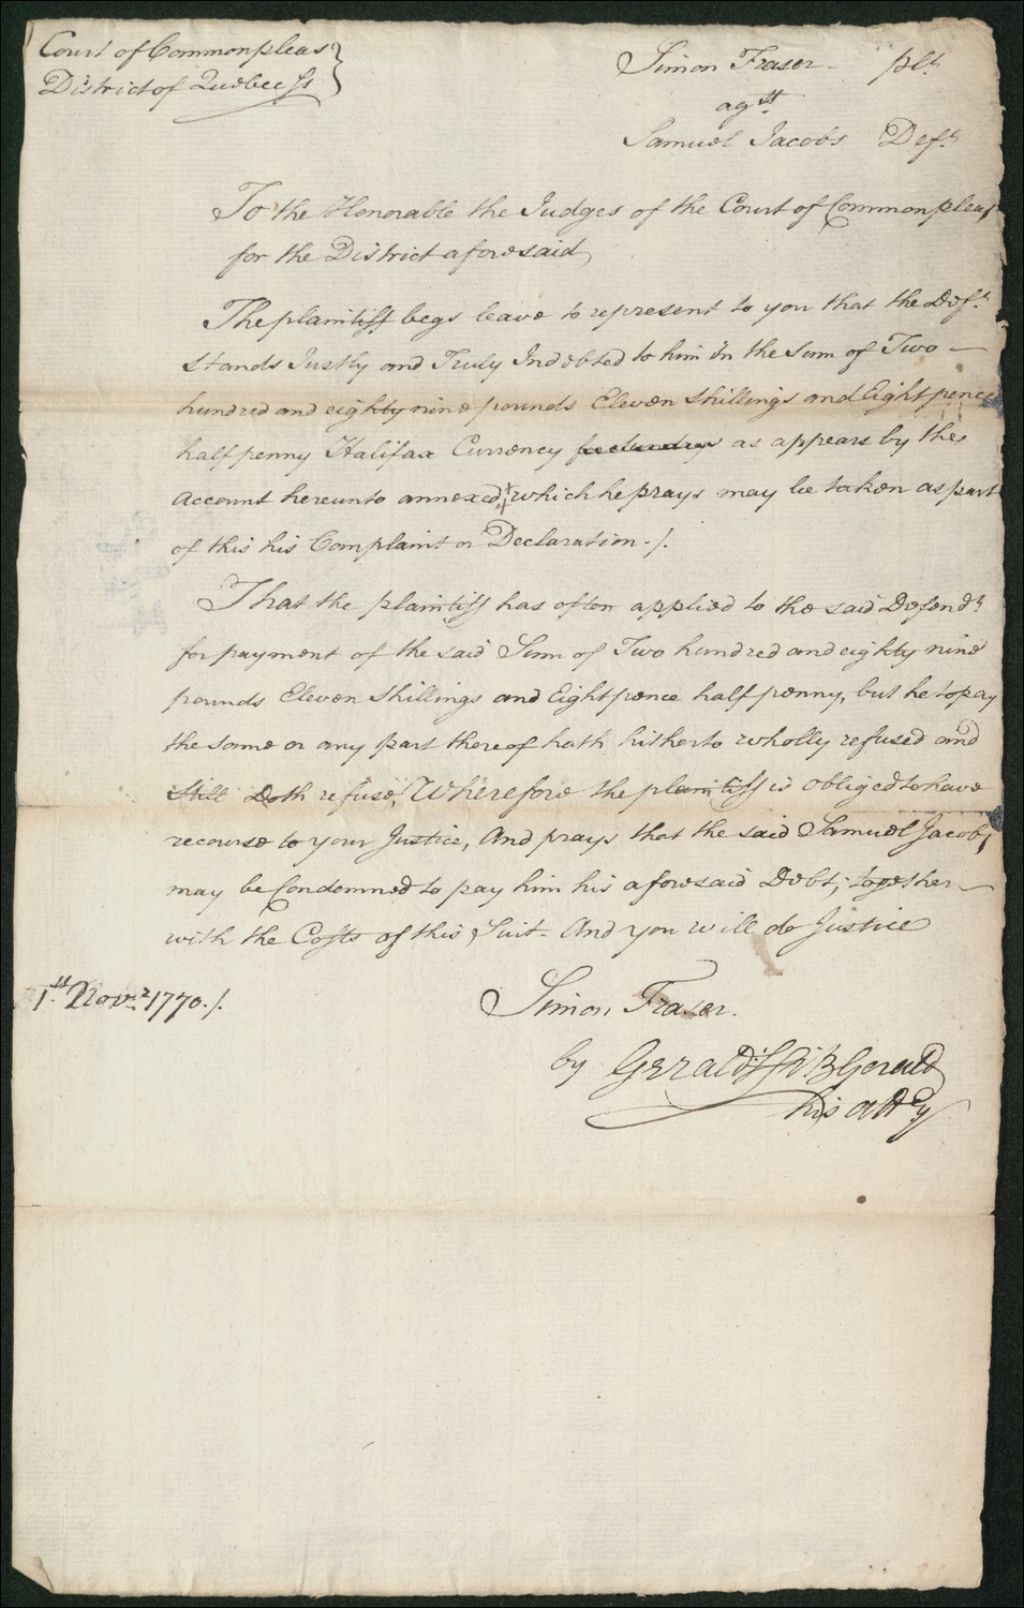 Court of Commonpleas }
District of Quebec Ss }
Simon Fraser - plt.
agst
Samuel Jacobs Deft.
To the Honorable the Judges of the Court of Commonpleas
for the District aforesaid,
The plaintiff begs leave to represent to you that the Deft.
Stands Justly and Truly Indebted to him in the Sum of Two -
hundred and eighty nine pounds Eleven Shillings and Eight pence
halfpenny Halifax Currency as appears by the
Account hereunto annexed, which he prays may be taken as part
of this his Complaint or Declaration. /.
That the plaintiff has often applied to the said Defendt.
for payment of the said Sum of Two hundred and eighty nine
pounds Eleven Shillings and Eight pence half penny, but he to pay
the same or any part thereof hath hitherto wholly refused and
Still Doth refuse, Wherefore the plaintiff is obliged to have
recourse to your Justice, And prays that the said Samuel Jacobs
may be Condemned to pay him his aforesaid Debt, together -
with the Costs of this Suit - And you will do Justice
1st. Novr. 1770. /.
Simon Fraser.
by Gerald FitzGerald
his Atty